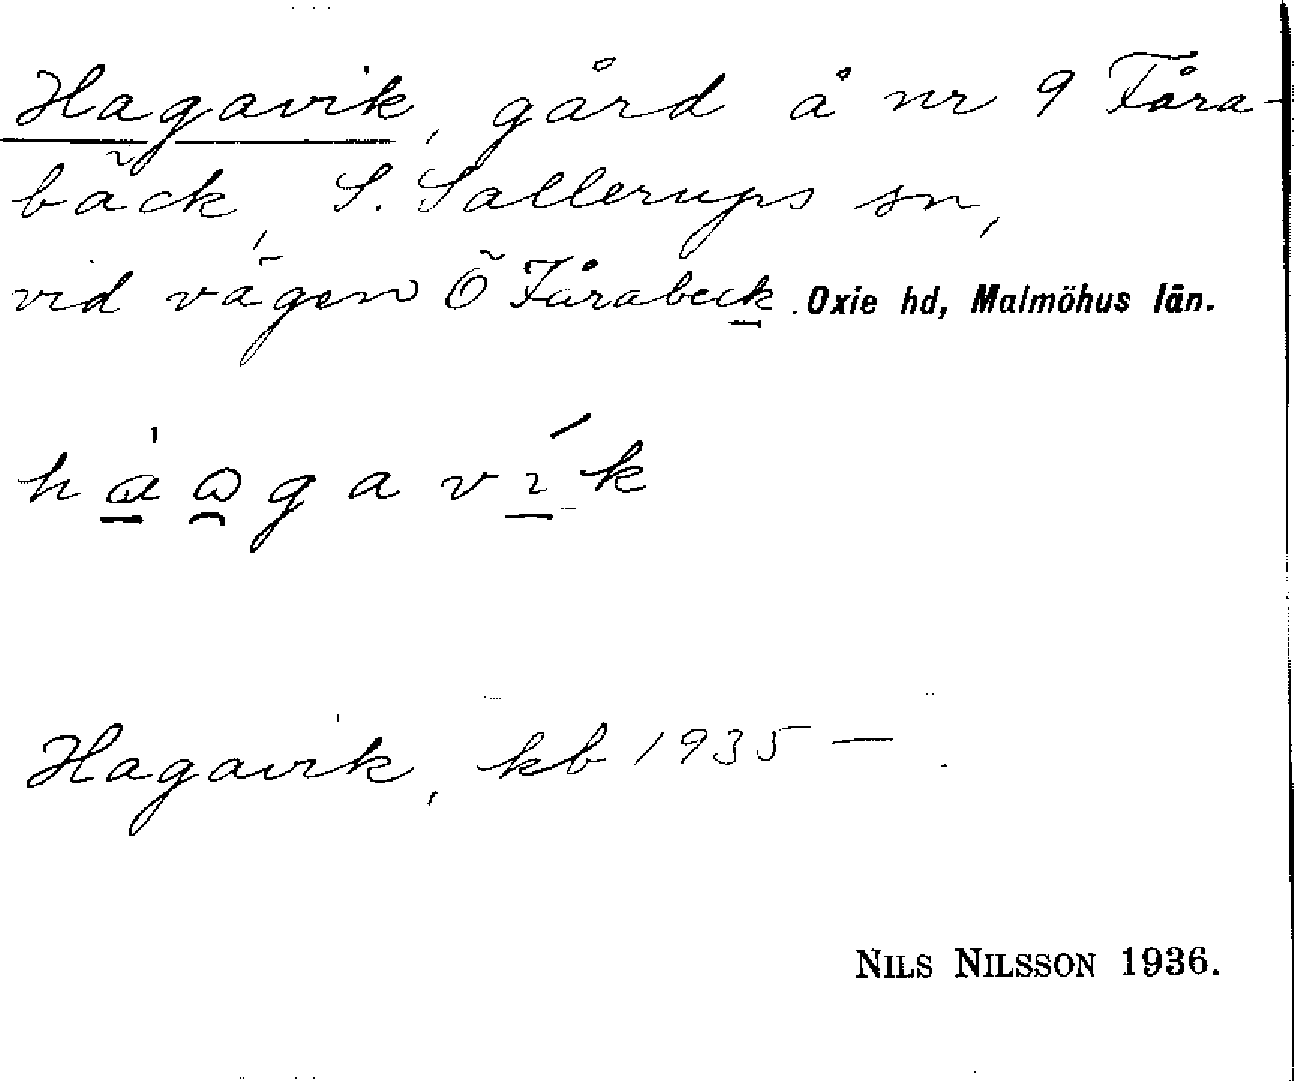 Hagavik, gård å nr 9 Fåra-
bäck, S. Sallerups sn,
vid vägen Ö Fårabeck. Oxie hd, Malmöhus län.
Hagavik, kb 1935 — .
NILS NILSSON 1936.